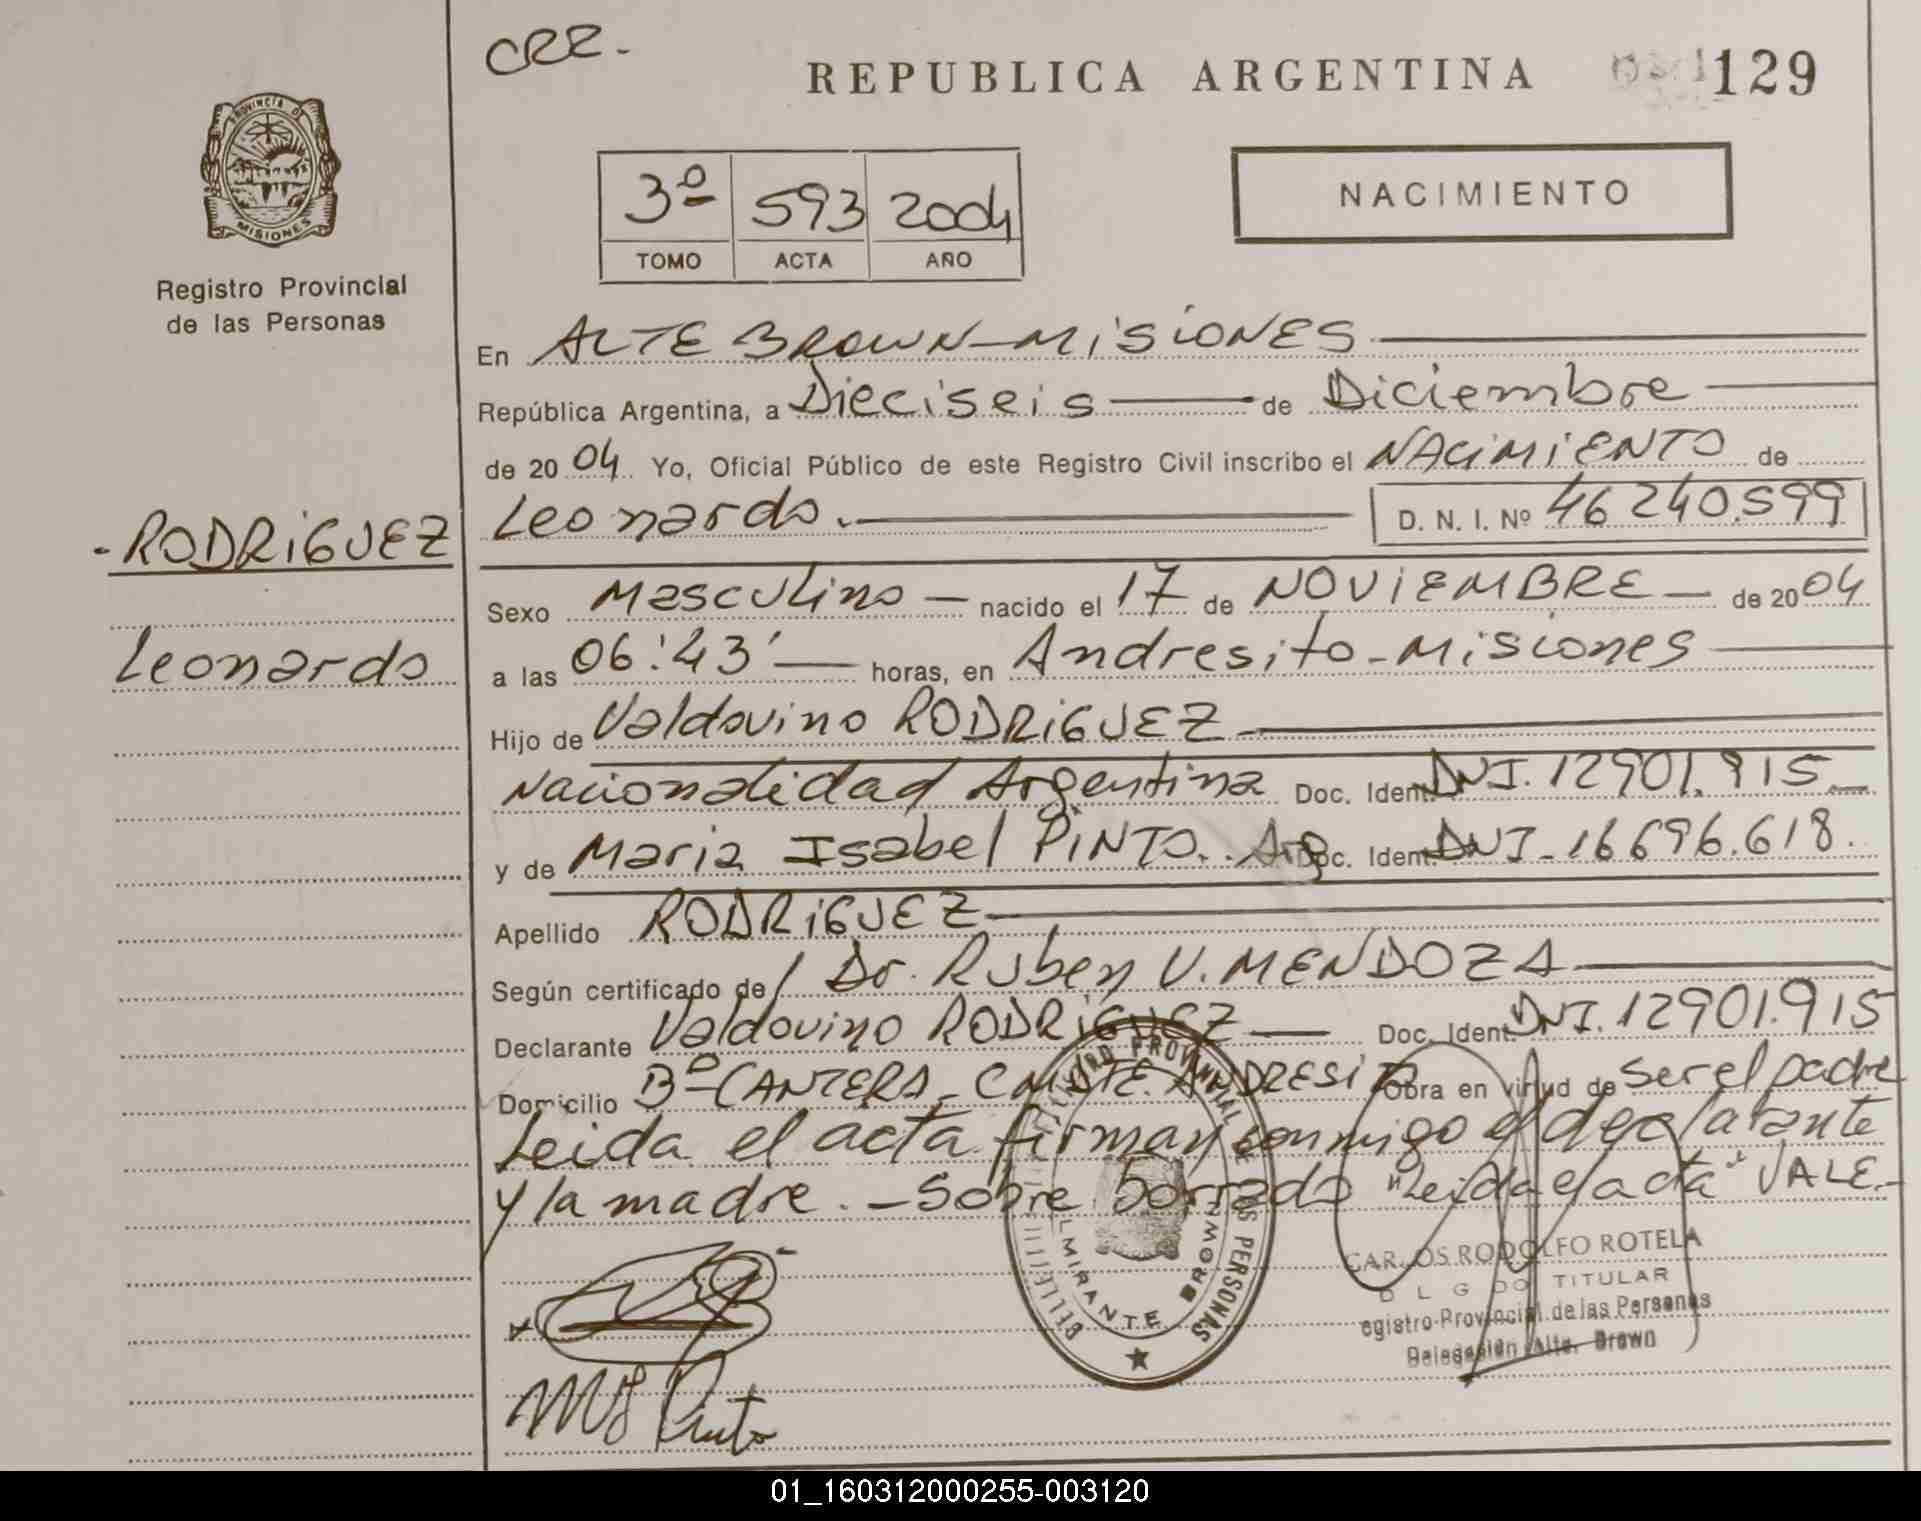 CRZ.
REPUBLICA ARGENTINA
129
PROVINCIA D
MISIONES
Registro Provincial
de las Personas
3º 593 2004
TOMO ACTA AÑO
NACIMIENTO
En ALTE BROWN-MISIONES
República Argentina, a Dieciseis de Diciembre
de 20 04. Yo, Oficial Público de este Registro Civil inscribo el NACIMIENTO de
Leonardo. D. N. I. Nº 46240.599
- RODRIGUEZ
Leonardo
Sexo Masculino nacido el 17 de NOVIEMBRE de 2004
a las 06:43' horas, en Andresito - Misiones
Hijo de Valdovino RODRIGUEZ
Nacionalidad Argentina Doc. Ident. DNI. 12901.915
y de Maria Isabel PINTO. Arg Doc. Ident. DNI - 16696.618.
Apellido RODRIGUEZ
Según certificado de Dr. Ruben V. MENDOZA
Declarante Valdovino RODRIGUEZ Doc. Ident. DNI. 12901.915
Domicilio Bº - CANTERA - CMDTE. ANDRESITO Obra en virtud de ser el padre
Leida el acta firman conmigo el declarante
y la madre. - Sobre borrado "Leida el acta" VALE.-
REGISTRO PROVINCIAL DE LAS PERSONAS
ALMIRANTE BROWN
CARLOS RODOLFO ROTELA
TITULAR
egistro Provincial de las Personas
Delegación Alte. Brown
MI Pinto
01_160312000255-003120